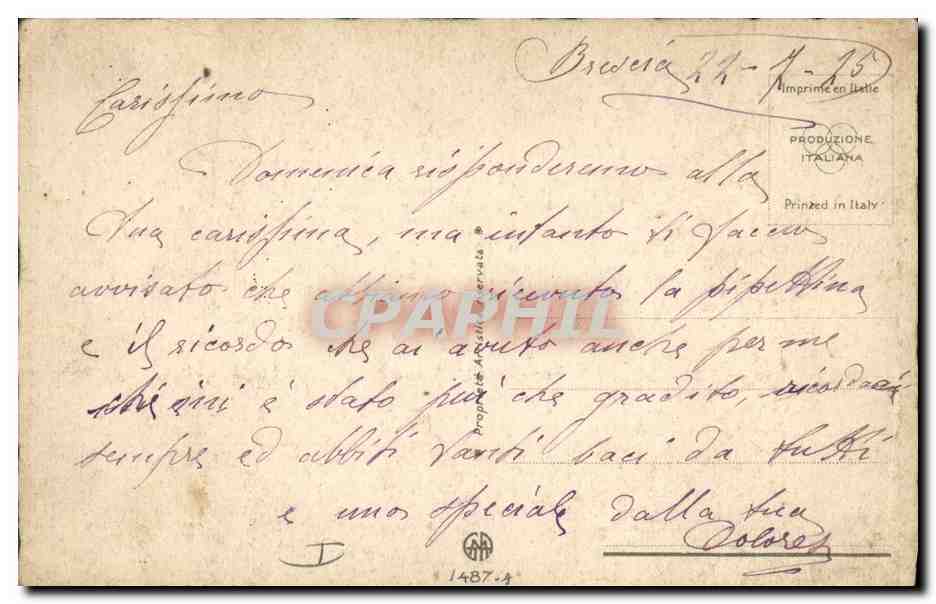 Brescia 22-7-25
Imprimé en Italie
Carissimo
PRODUZIONE
ITALIANA
Domenica risponderemo alla
Printed in Italy
tua carissima, ma intanto ti faccio
avvisato che abbiamo ricevuto la pipettina
e il ricordo che ai avuto anche per me
che mi è stato più che gradito, ricordaci
sempre ed abbiti tanti baci da tutti
e uno speciale dalla tua
Dolores
Proprietà Artistica Riservata
CPAPHIL
I
1487-A